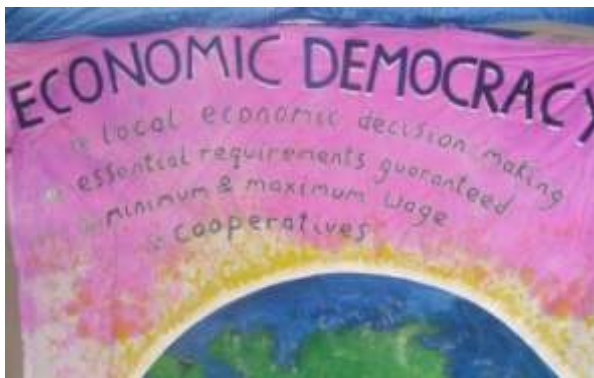 ECONOMIC DEMOCRACY
local economic decision making
essential requirements guaranteed
minimum & maximum wage
cooperatives